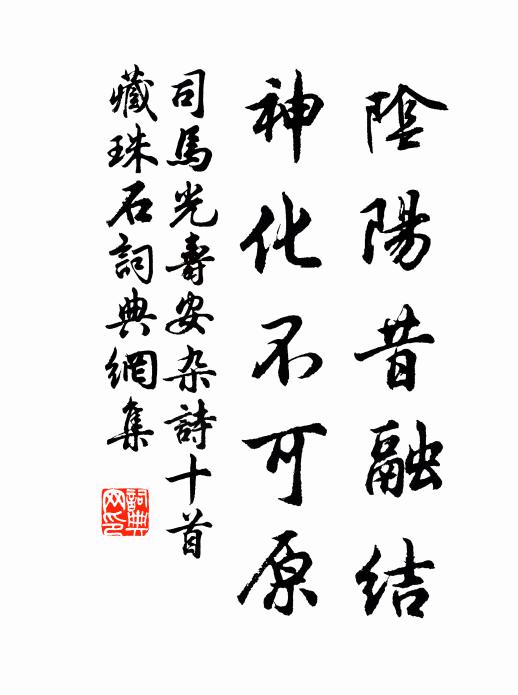 陰陽昔融結
神化不可原
司馬光壽安杂詩十首
藏珠石詞典網集
詞典网印